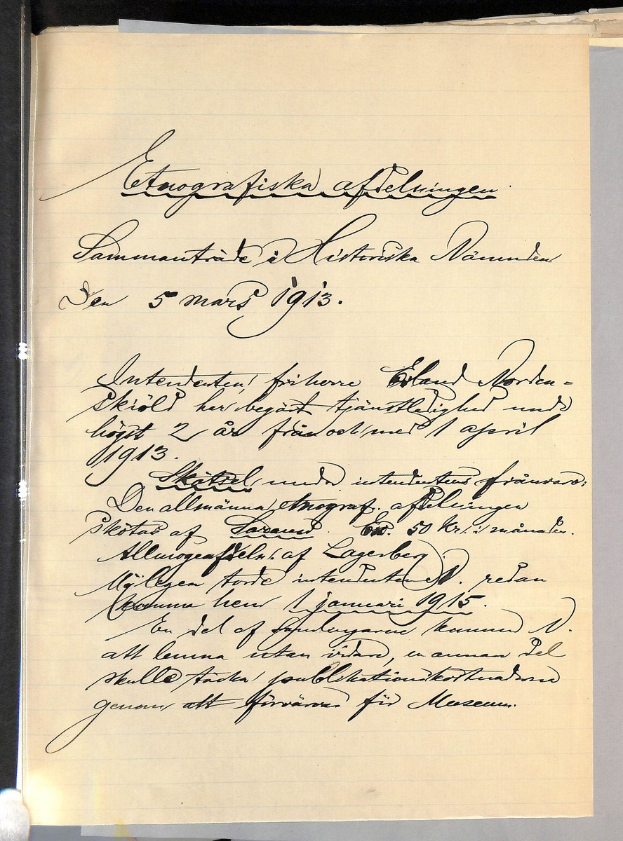 Etnografiska afdelningen
Sammanträde i Historiska Nämnden
Den 5 mars 1913.
Intendenten, friherre Erland Norden=
skiöld har begärt tjänstledighet under
högst 2 år från och med 1 april
1913.
Skötsel under intendentens frånvaro:
Den allmänna etnograf. afdelningen
skötas af 50 Kr. i månaden.
Allmogeafdeln. af Lagerberg.
Möjligen torde intendenten N. redan
komma hem 1 januari 1915.
En del af samlingarna kunde N.
att lemna utan vidare, en annan del
skulle täcka publikationskostnaderna
genom att förvärvas för Museum.